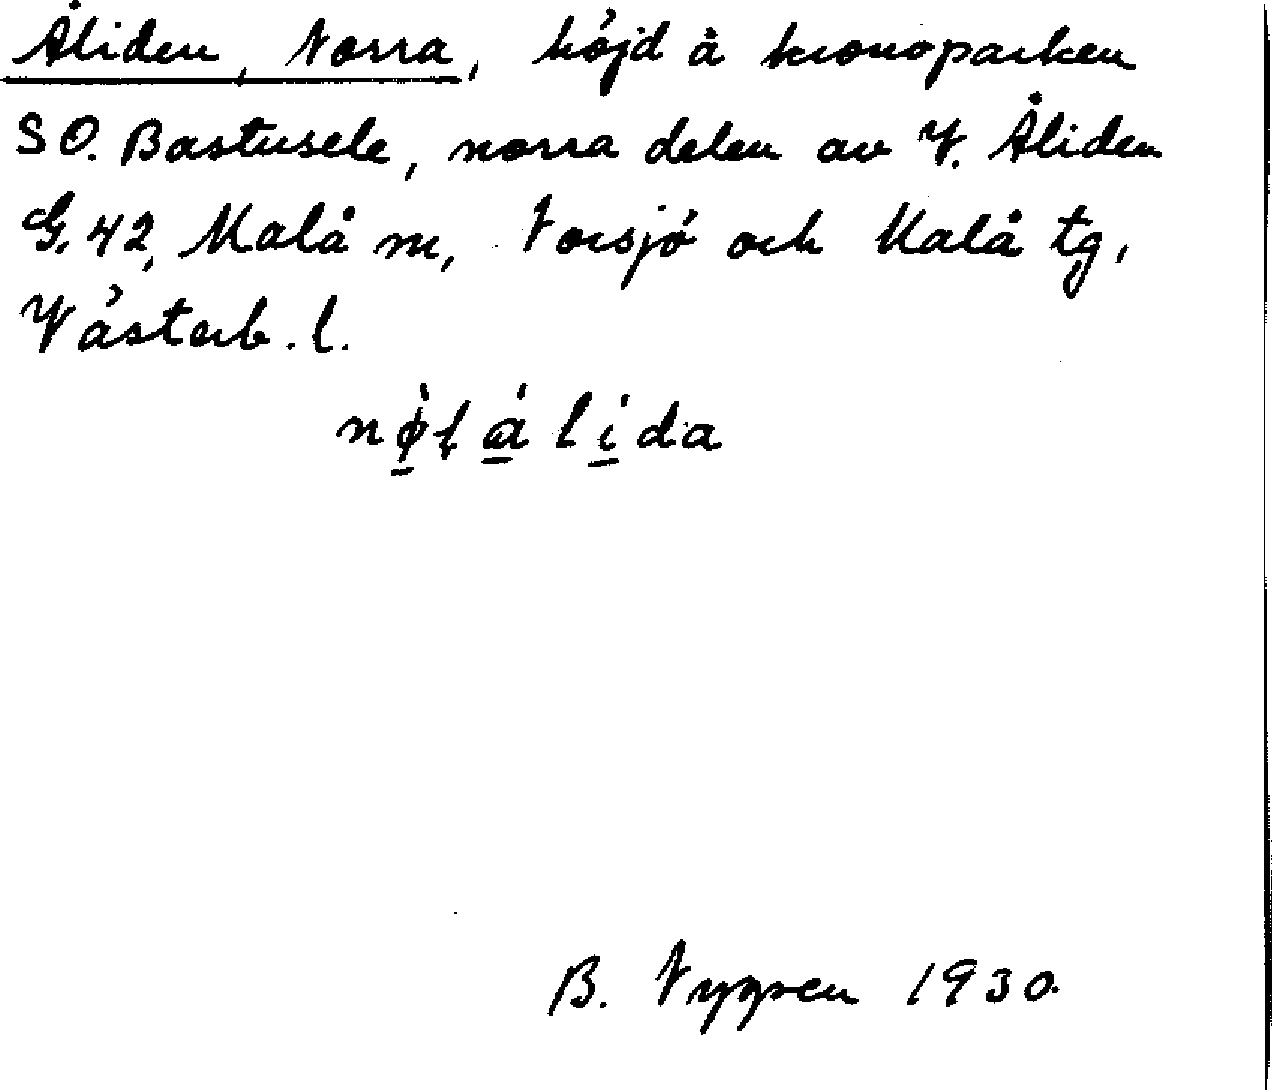 Åliden, Norra, höjd å kronoparken
SO. Bastusele, norra delen av V. Åliden
G. 42, Malå sn, Norsjö och Malå tg,
Västerb. l.
B. Nygren 1930.